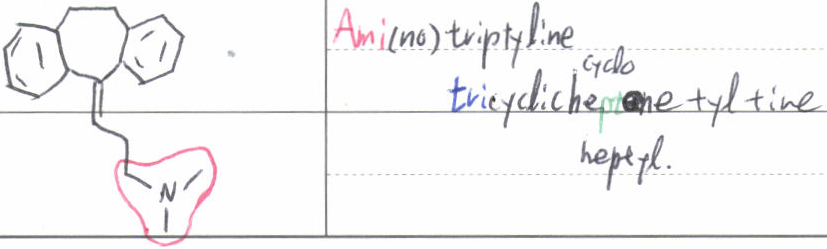 Ami(no)triptyline
cyclo
tricyclic heptene + yl + ine
heptyl.
N